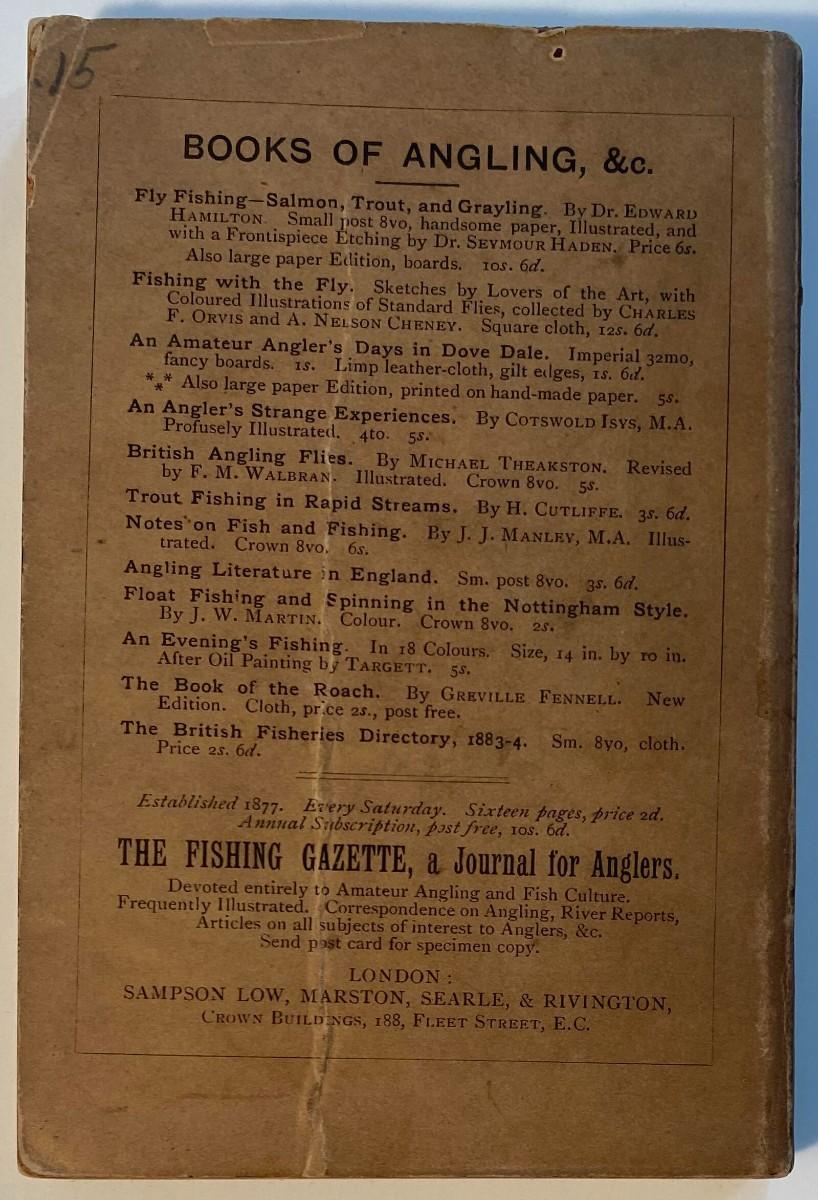 .15
BOOKS OF ANGLING, &c.
Fly Fishing—Salmon, Trout, and Grayling. By Dr. EDWARD
HAMILTON. Small post 8vo, handsome paper, Illustrated, and
with a Frontispiece Etching by Dr. SEYMOUR HADEN. Price 6s.
Also large paper Edition, boards. 10s. 6d.
Fishing with the Fly. Sketches by Lovers of the Art, with
Coloured Illustrations of Standard Flies, collected by CHARLES
F. ORVIS and A. NELSON CHENEY. Square cloth, 12s. 6d.
An Amateur Angler's Days in Dove Dale. Imperial 32mo,
fancy boards. 1s. Limp leather-cloth, gilt edges, 1s. 6d.
*** Also large paper Edition, printed on hand-made paper. 5s.
An Angler's Strange Experiences. By COTSWOLD ISYS, M.A.
Profusely Illustrated. 4to. 5s.
British Angling Flies. By MICHAEL THEAKSTON. Revised
by F. M. WALBRAN. Illustrated. Crown 8vo. 5s.
Trout Fishing in Rapid Streams. By H. CUTLIFFE. 3s. 6d.
Notes on Fish and Fishing. By J. J. MANLEY, M.A. Illus-
trated. Crown 8vo. 6s.
Angling Literature in England. Sm. post 8vo. 3s. 6d.
Float Fishing and Spinning in the Nottingham Style.
By J. W. MARTIN. Colour. Crown 8vo. 2s.
An Evening's Fishing. In 18 Colours. Size, 14 in. by 10 in.
After Oil Painting by TARGETT. 5s.
The Book of the Roach. By GREVILLE FENNELL. New
Edition. Cloth, price 2s., post free.
The British Fisheries Directory, 1883-4. Sm. 8vo, cloth.
Price 2s. 6d.
Established 1877. Every Saturday. Sixteen pages, price 2d.
Annual Subscription, post free, 10s. 6d.
THE FISHING GAZETTE, a Journal for Anglers.
Devoted entirely to Amateur Angling and Fish Culture.
Frequently Illustrated. Correspondence on Angling, River Reports,
Articles on all subjects of interest to Anglers, &c.
Send post card for specimen copy.
LONDON:
SAMPSON LOW, MARSTON, SEARLE, & RIVINGTON,
CROWN BUILDINGS, 188, FLEET STREET, E.C.